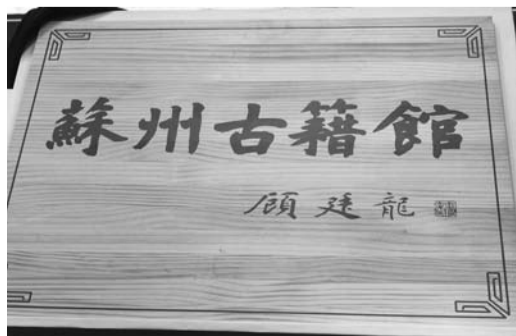 蘇州古籍館
顧廷龍